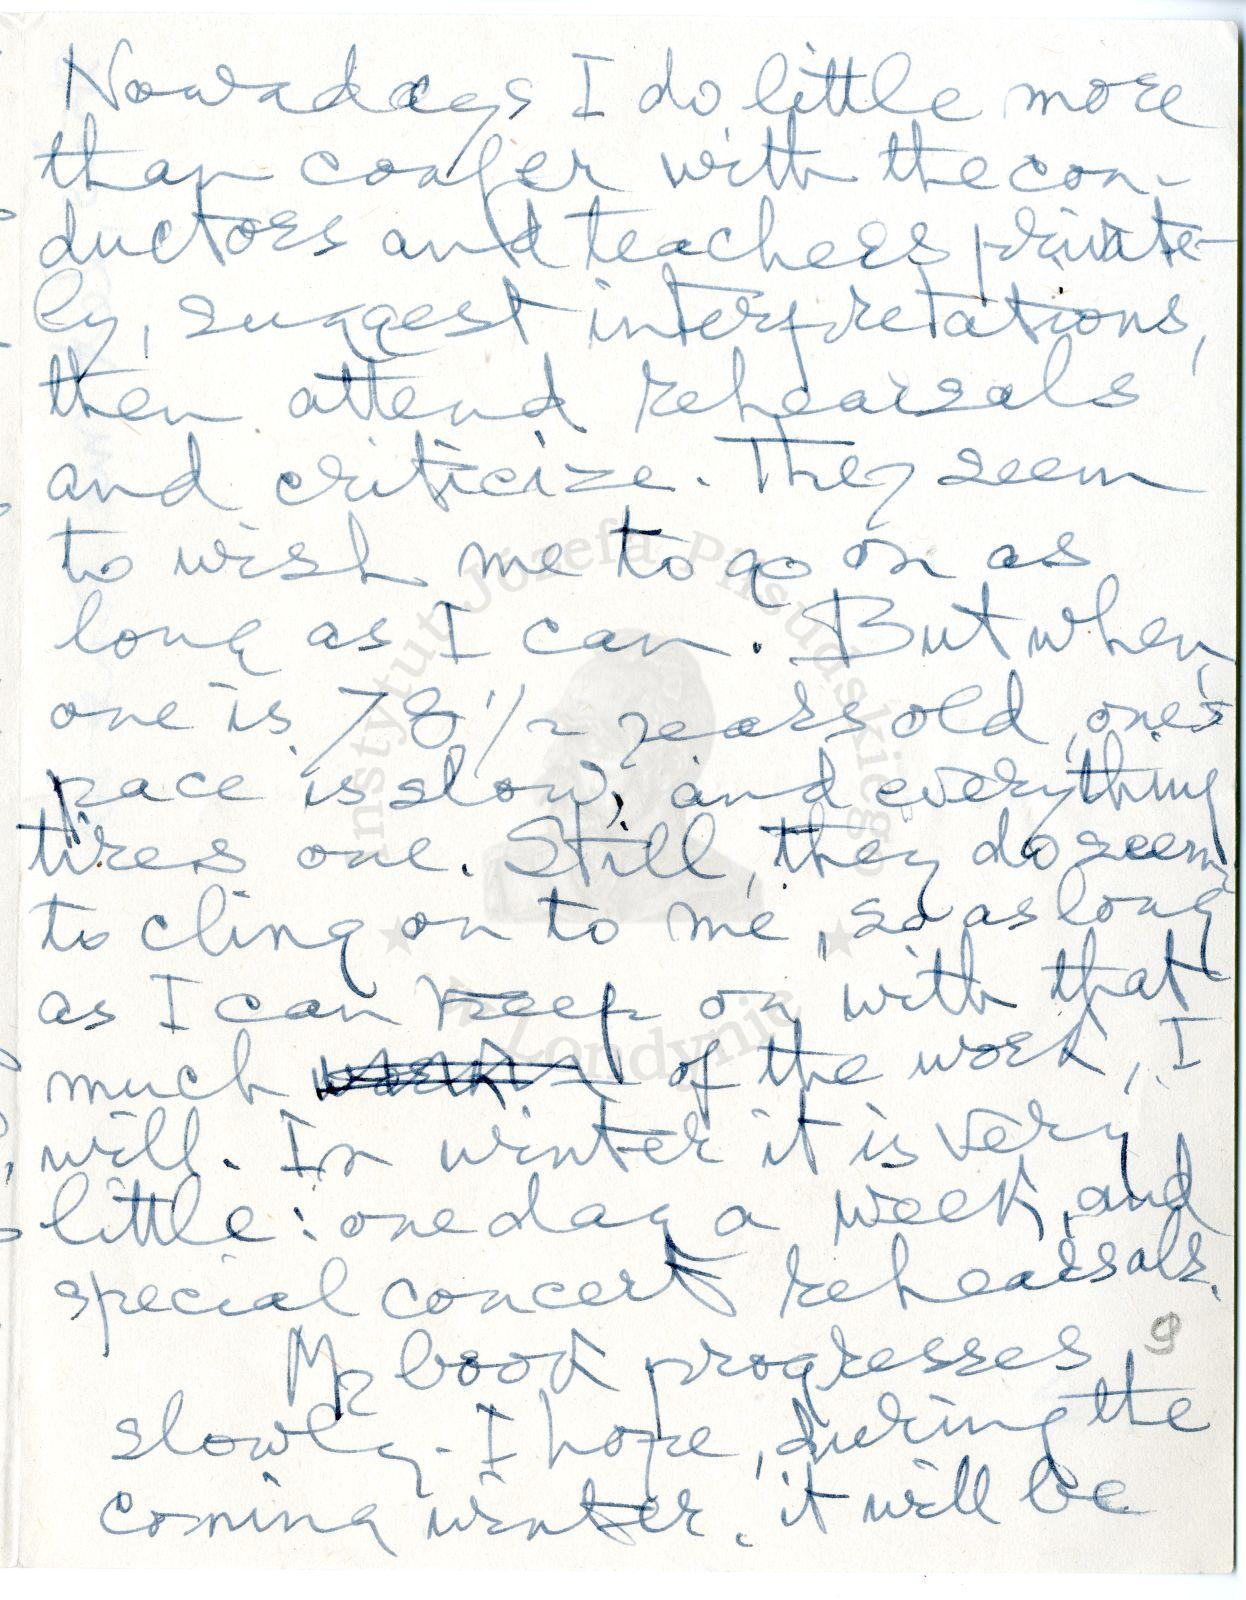 Nowadays I do little more
than confer with the con-
ductors and teachers private-
ly, suggest interpretations,
then attend rehearsals
and criticize. They seem
to wish me to go on as
long as I can. But when
one is 78 1/2 years old, one's
pace is slow, and everything
tires one. Still, they do seem
to cling on to me, so as long
as I can keep on with that
much of the work, I
will. In winter it is very
little: one day a week, and
special concert rehearsals.
My book progresses
slowly - I hope, during the
coming winter, it will be
9
Instytut Józefa Piłsudskiego
w Londynie